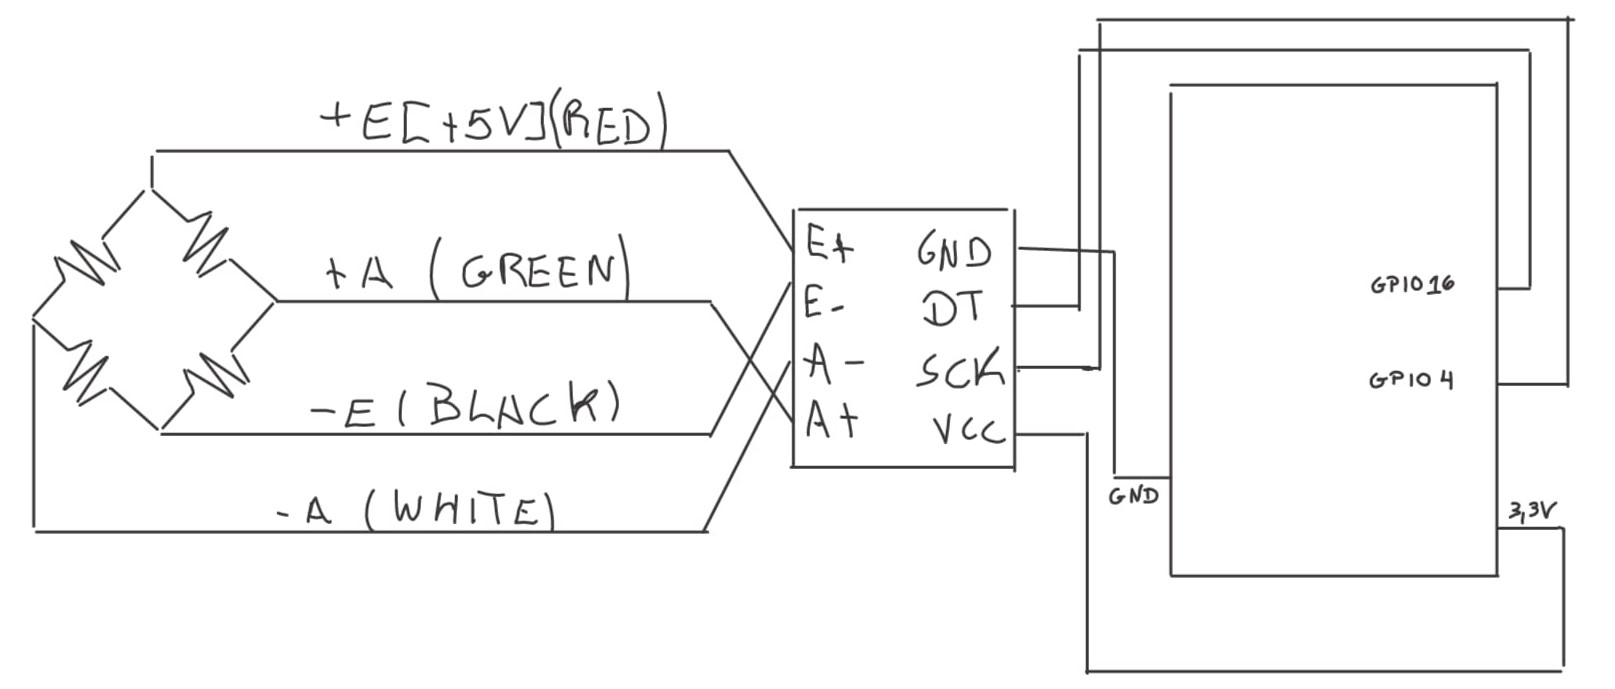 +E[+5V](RED)
+A (GREEN)
-E (BLACK)
-A (WHITE)
E+ GND
E- DT
A- SCK
A+ VCC
GPIO16
GPIO4
GND
3,3V